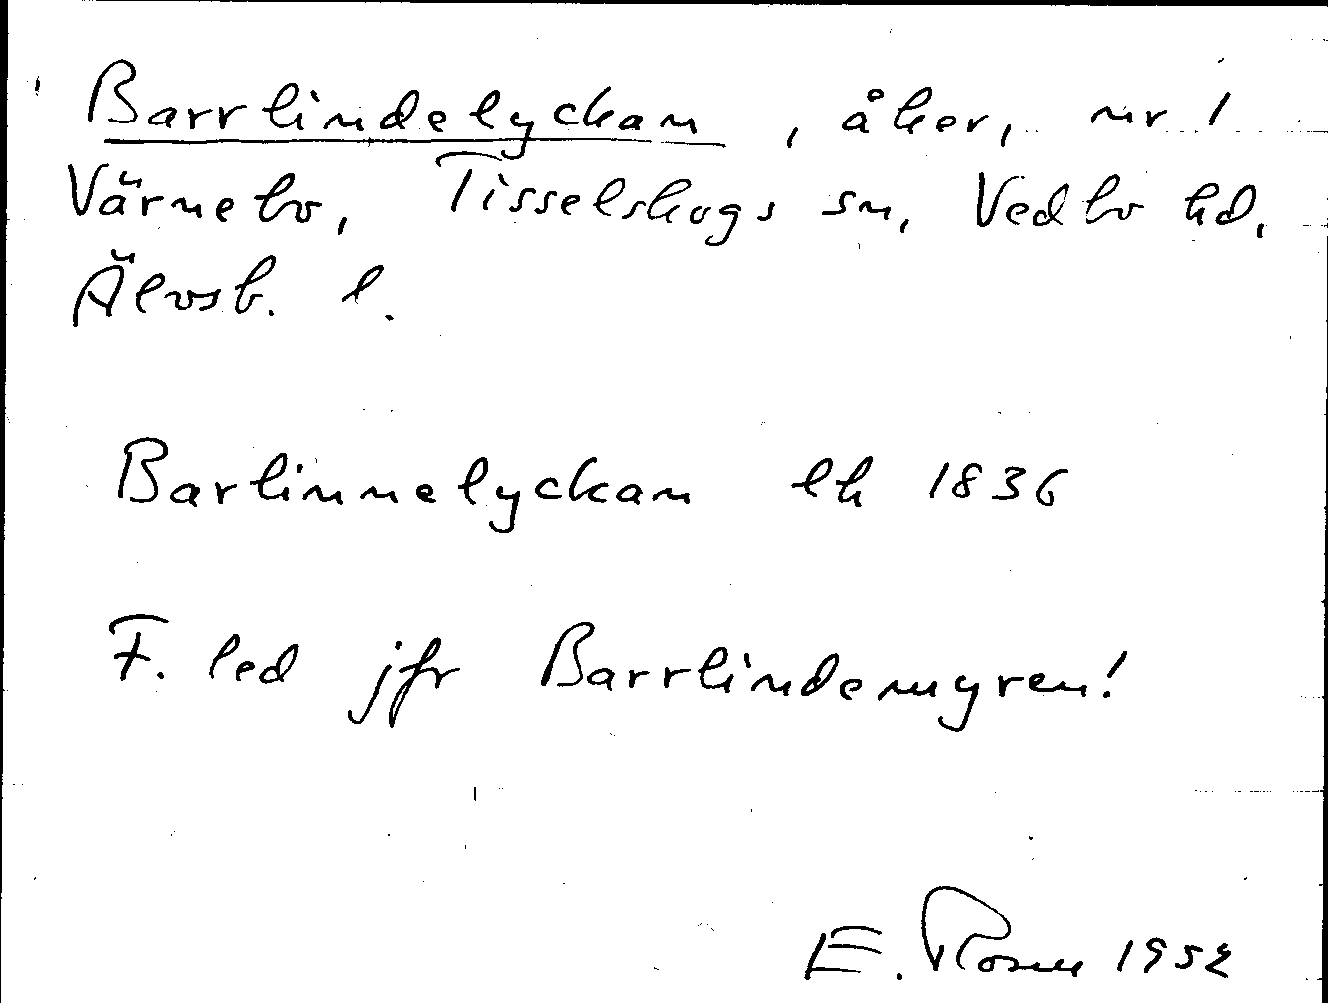 Barrlindelyckan, åker, nr 1
Värnebo, Tisselskogs sn, Vedbo hd,
Älvsb. l.
Barlinnelyckan lh 1836
F. led jfr Barrlindemyren!
E. Rosen 1952